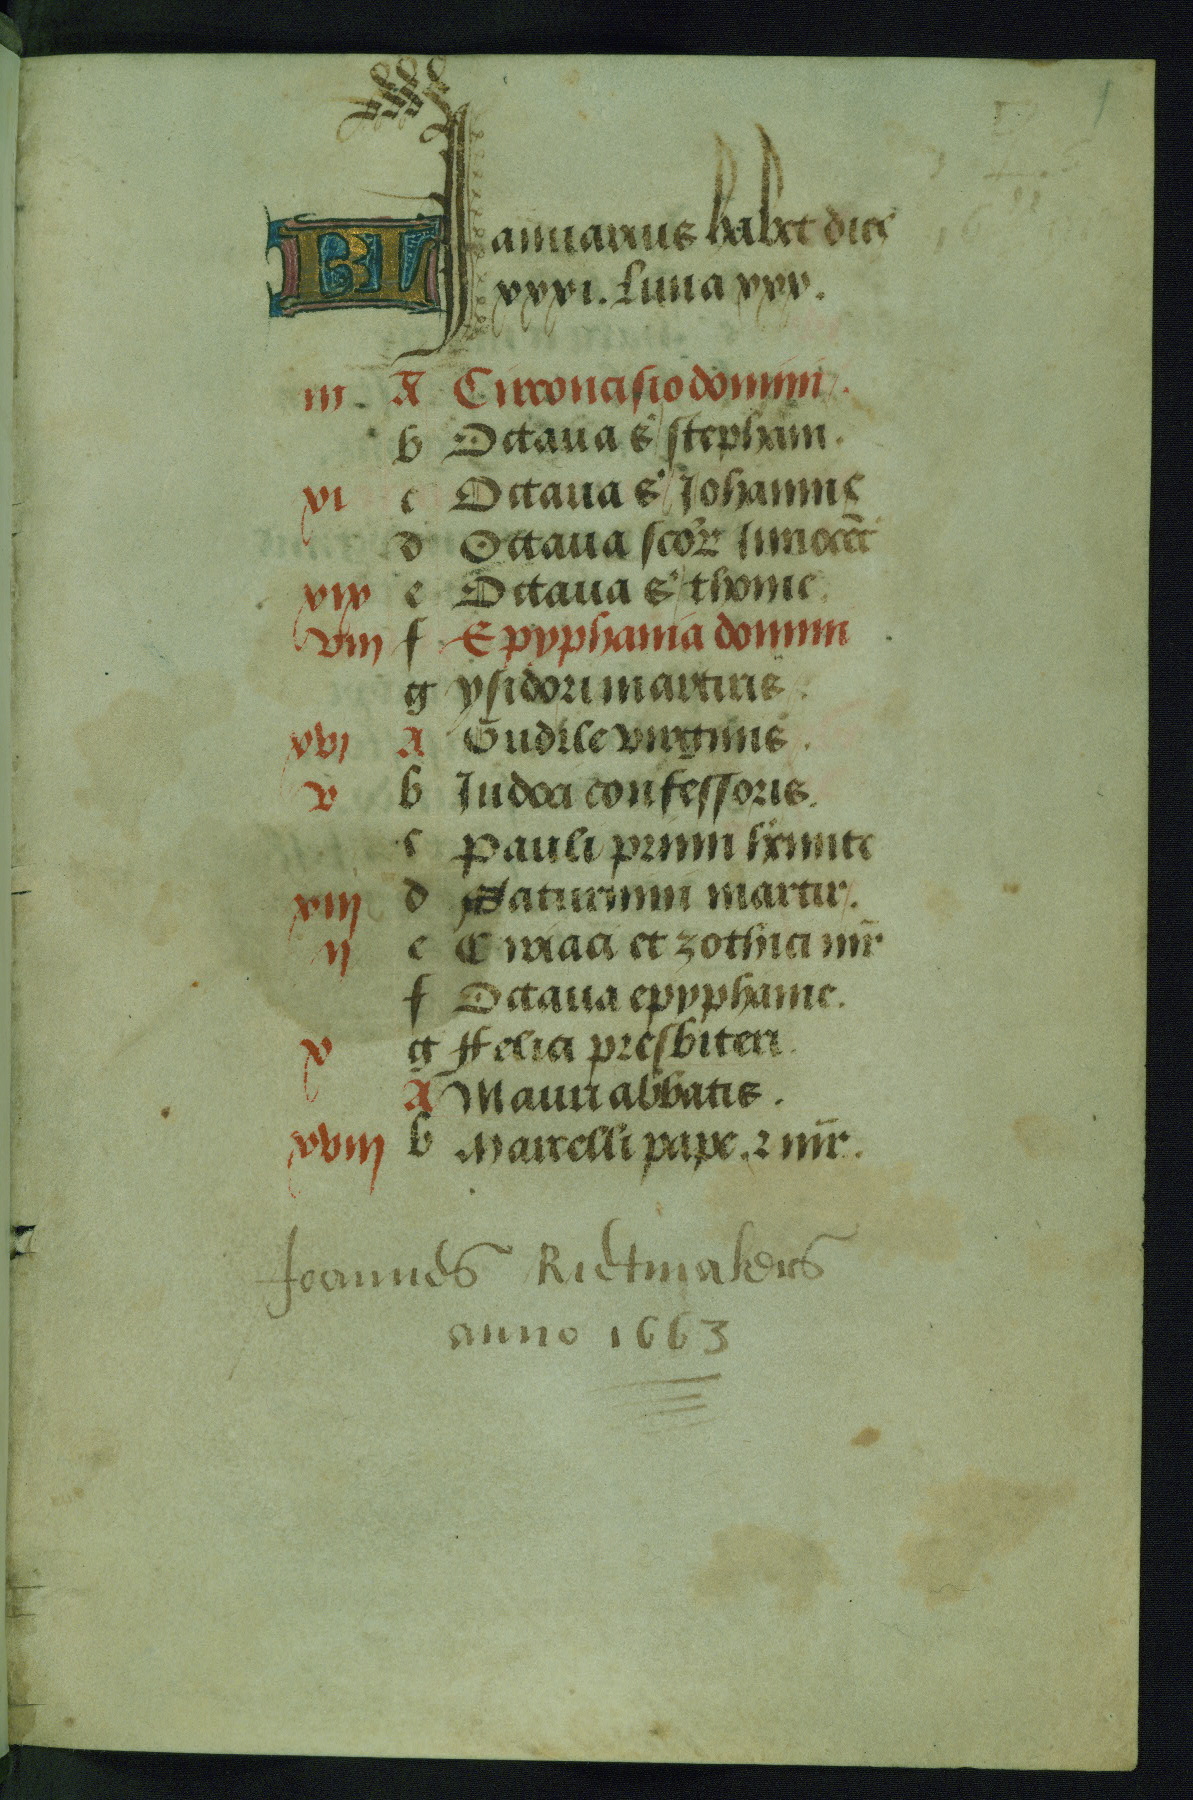 KL Januarius habet dies
xxxi. Luna xxx.
iij. A Circoncisio domini.
b Octaua s stephani.
vi c Octaua s Johannis
d Octaua scor Innocēt
xix e Octaua s thome.
viij f Epyphania domini
g ysidori martiris.
xvi A Gudile virginis.
v b Judoci confessoris.
c Pauli primi heremite
xiij d Saturnini martir.
ij e Ciriaci et zothici mr̄
f Octaua epyphanie.
x g ffelici presbiteri.
A Mauri abbatis.
xviij b Marcelli pape. ⁊ mr̄.
Joannes Rietmakers
anno 1663
1